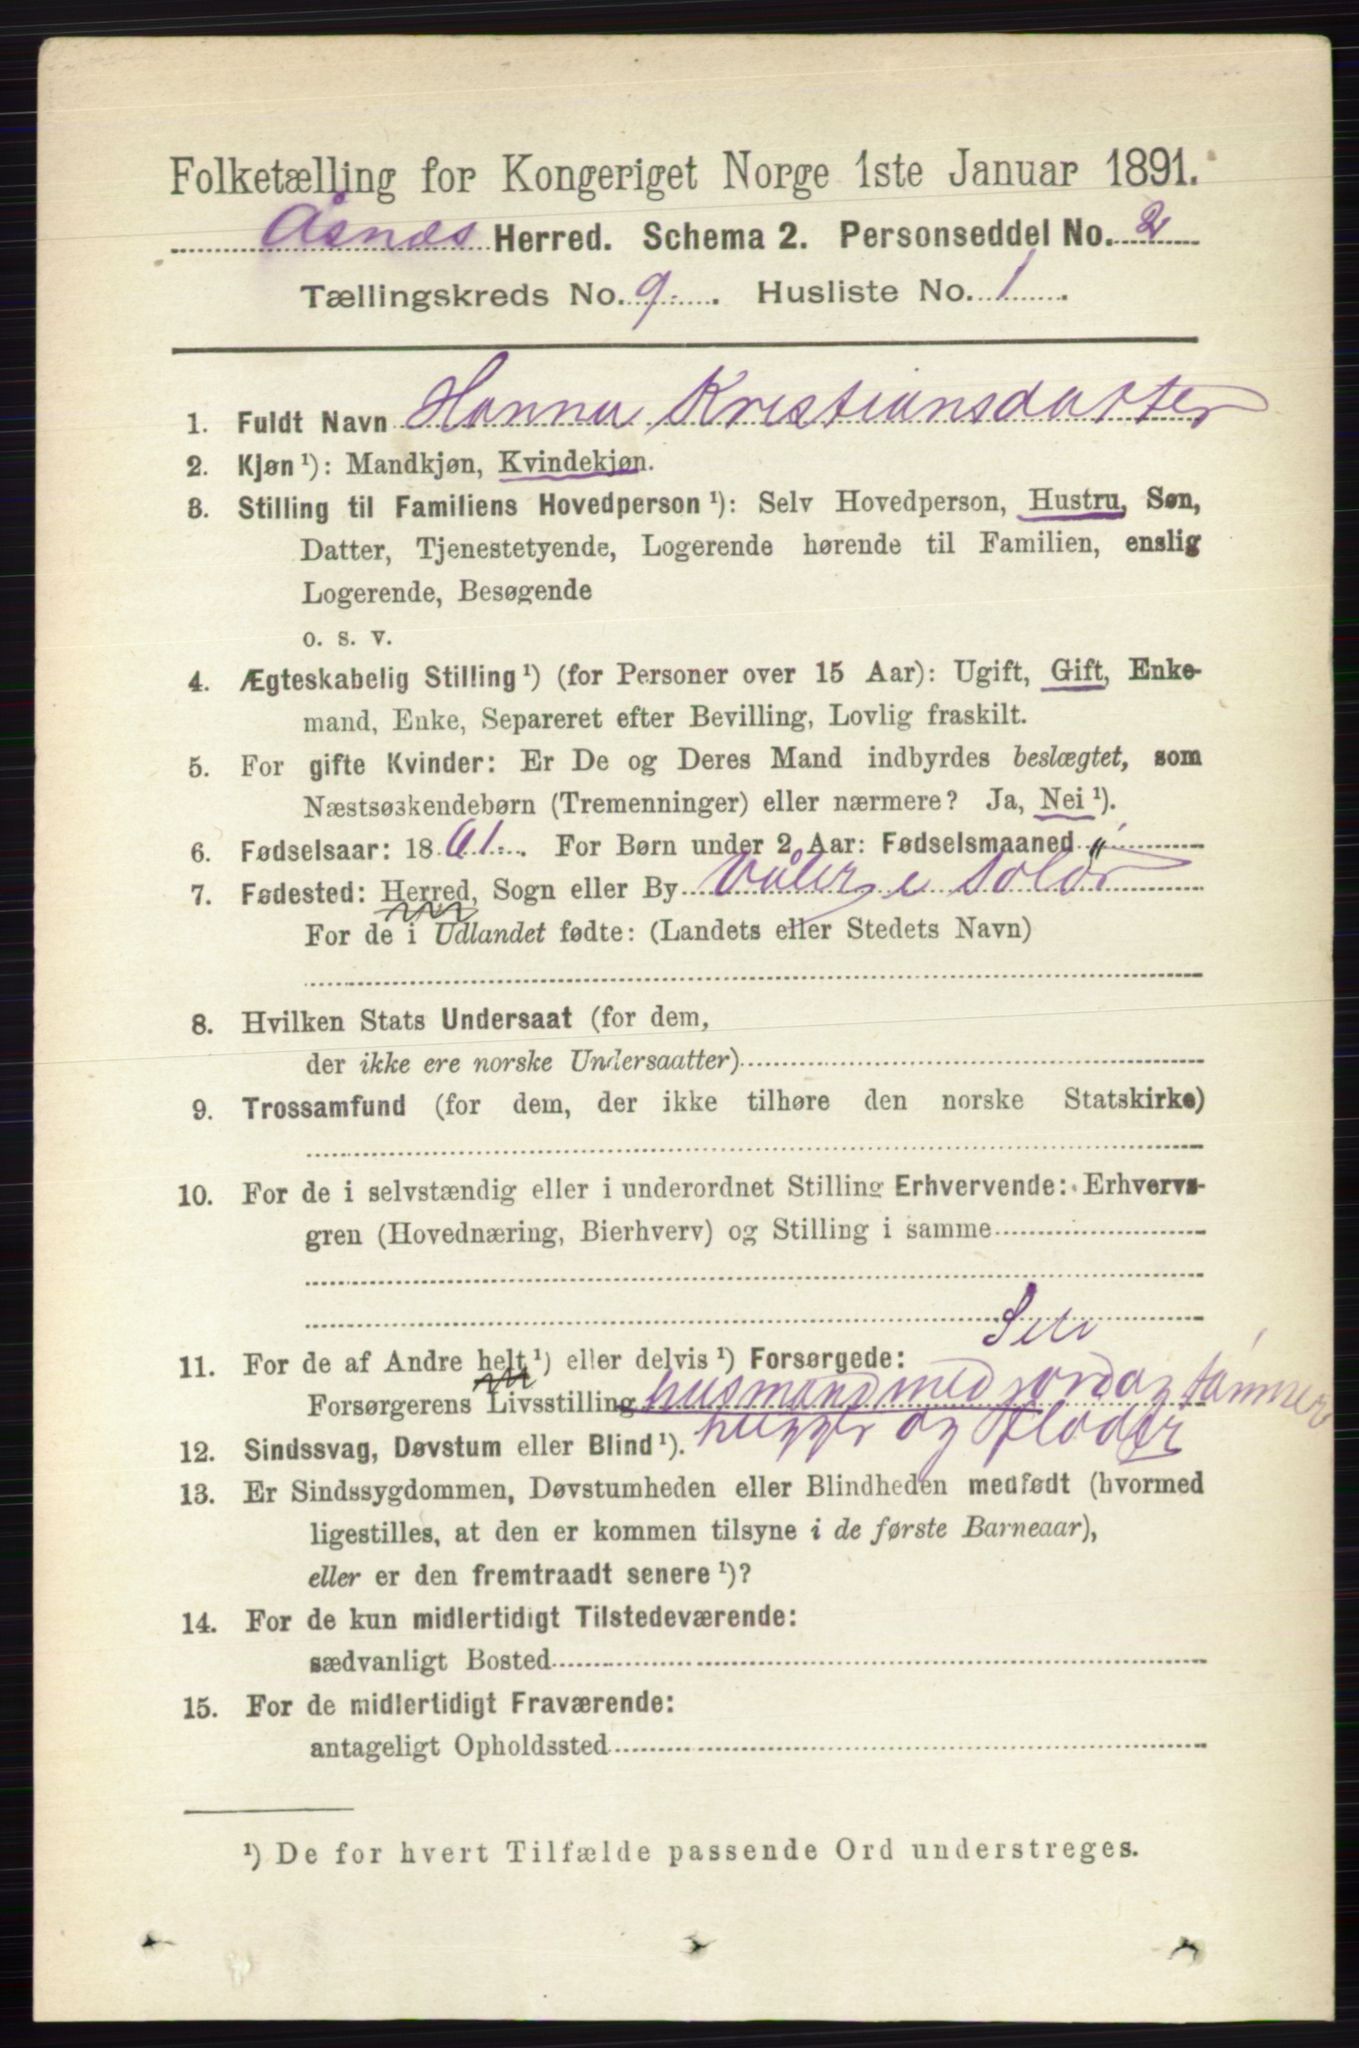 Folketælling for Kongeriget Norge 1ste Januar 1891.
Åsnes Herred. Schema 2. Personseddel No. 2
Tællingskreds No. 9. Husliste No. 1.
1. Fuldt Navn Hanna Kristiansdatter
2. Kjøn ¹): Mandkjøn, Kvindekjøn.
3. Stilling til Familiens Hovedperson ¹): Selv Hovedperson, Hustru, Søn,
Datter, Tjenestetyende, Logerende hørende til Familien, enslig
Logerende, Besøgende
o. s. v.
4. Ægteskabelig Stilling ¹) (for Personer over 15 Aar): Ugift, Gift, Enke-
mand, Enke, Separeret efter Bevilling, Lovlig fraskilt.
5. For gifte Kvinder: Er De og Deres Mand indbyrdes beslægtet, som
Næstsøskendebørn (Tremenninger) eller nærmere? Ja, Nei ¹).
6. Fødselsaar: 1861. For Børn under 2 Aar: Fødselsmaaned "
7. Fødested: Herred, Sogn eller By Våler i Solør
For de i Udlandet fødte: (Landets eller Stedets Navn)
8. Hvilken Stats Undersaat (for dem,
der ikke ere norske Undersaatter)
9. Trossamfund (for dem, der ikke tilhøre den norske Statskirke)
10. For de i selvstændig eller i underordnet Stilling Erhvervende: Erhvervs-
gren (Hovednæring, Bierhverv) og Stilling i samme
11. For de af Andre helt ¹) eller delvis ¹) Forsørgede:
Forsørgerens Livsstilling husmand med jord og tømmer
hugger og fløder
12. Sindssvag, Døvstum eller Blind ¹).
13. Er Sindssygdommen, Døvstumheden eller Blindheden medfødt (hvormed
ligestilles, at den er kommen tilsyne i de første Barneaar),
eller er den fremtraadt senere ¹)?
14. For de kun midlertidigt Tilstedeværende:
sædvanligt Bosted
15. For de midlertidigt Fraværende:
antageligt Opholdssted
¹) De for hvert Tilfælde passende Ord understreges.